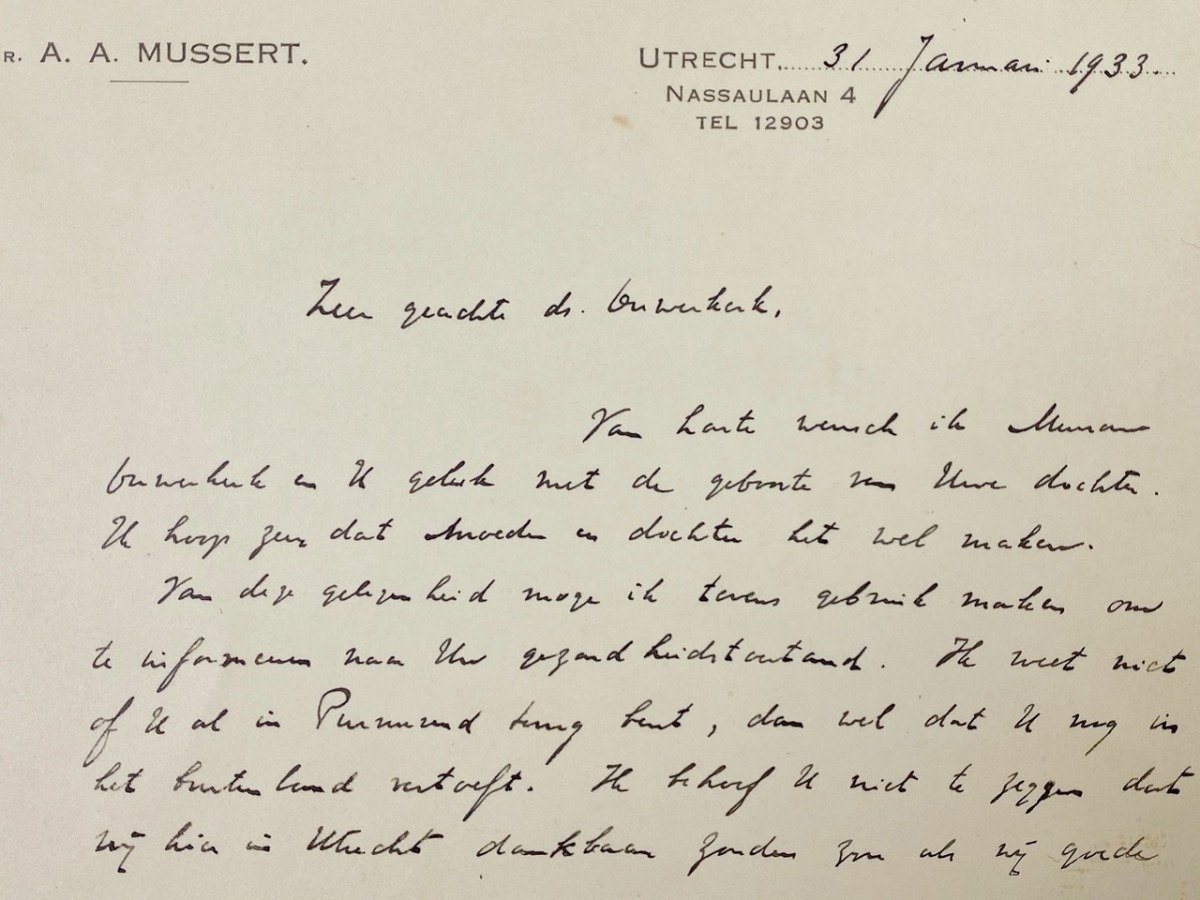 R. A. A. MUSSERT.
UTRECHT, 31 Januari 1933.
NASSAULAAN 4
TEL 12903
Zeer geachte ds. Ouwerkerk,
Van harte wensch ik Mevrouw
Ouwerkerk en U geluk met de geboorte van Uwe dochter.
Ik hoop zeer dat moeder en dochter het wel maken.
Van deze gelegenheid moge ik tevens gebruik maken om
te informeeren naar Uw gezondheidstoestand. Ik weet niet
of U al in Purmerend terug bent, dan wel dat U nog in
het buitenland vertoeft. Ik behoef U niet te zeggen dat
wij hier in Utrecht dankbaar zouden zijn als wij goede